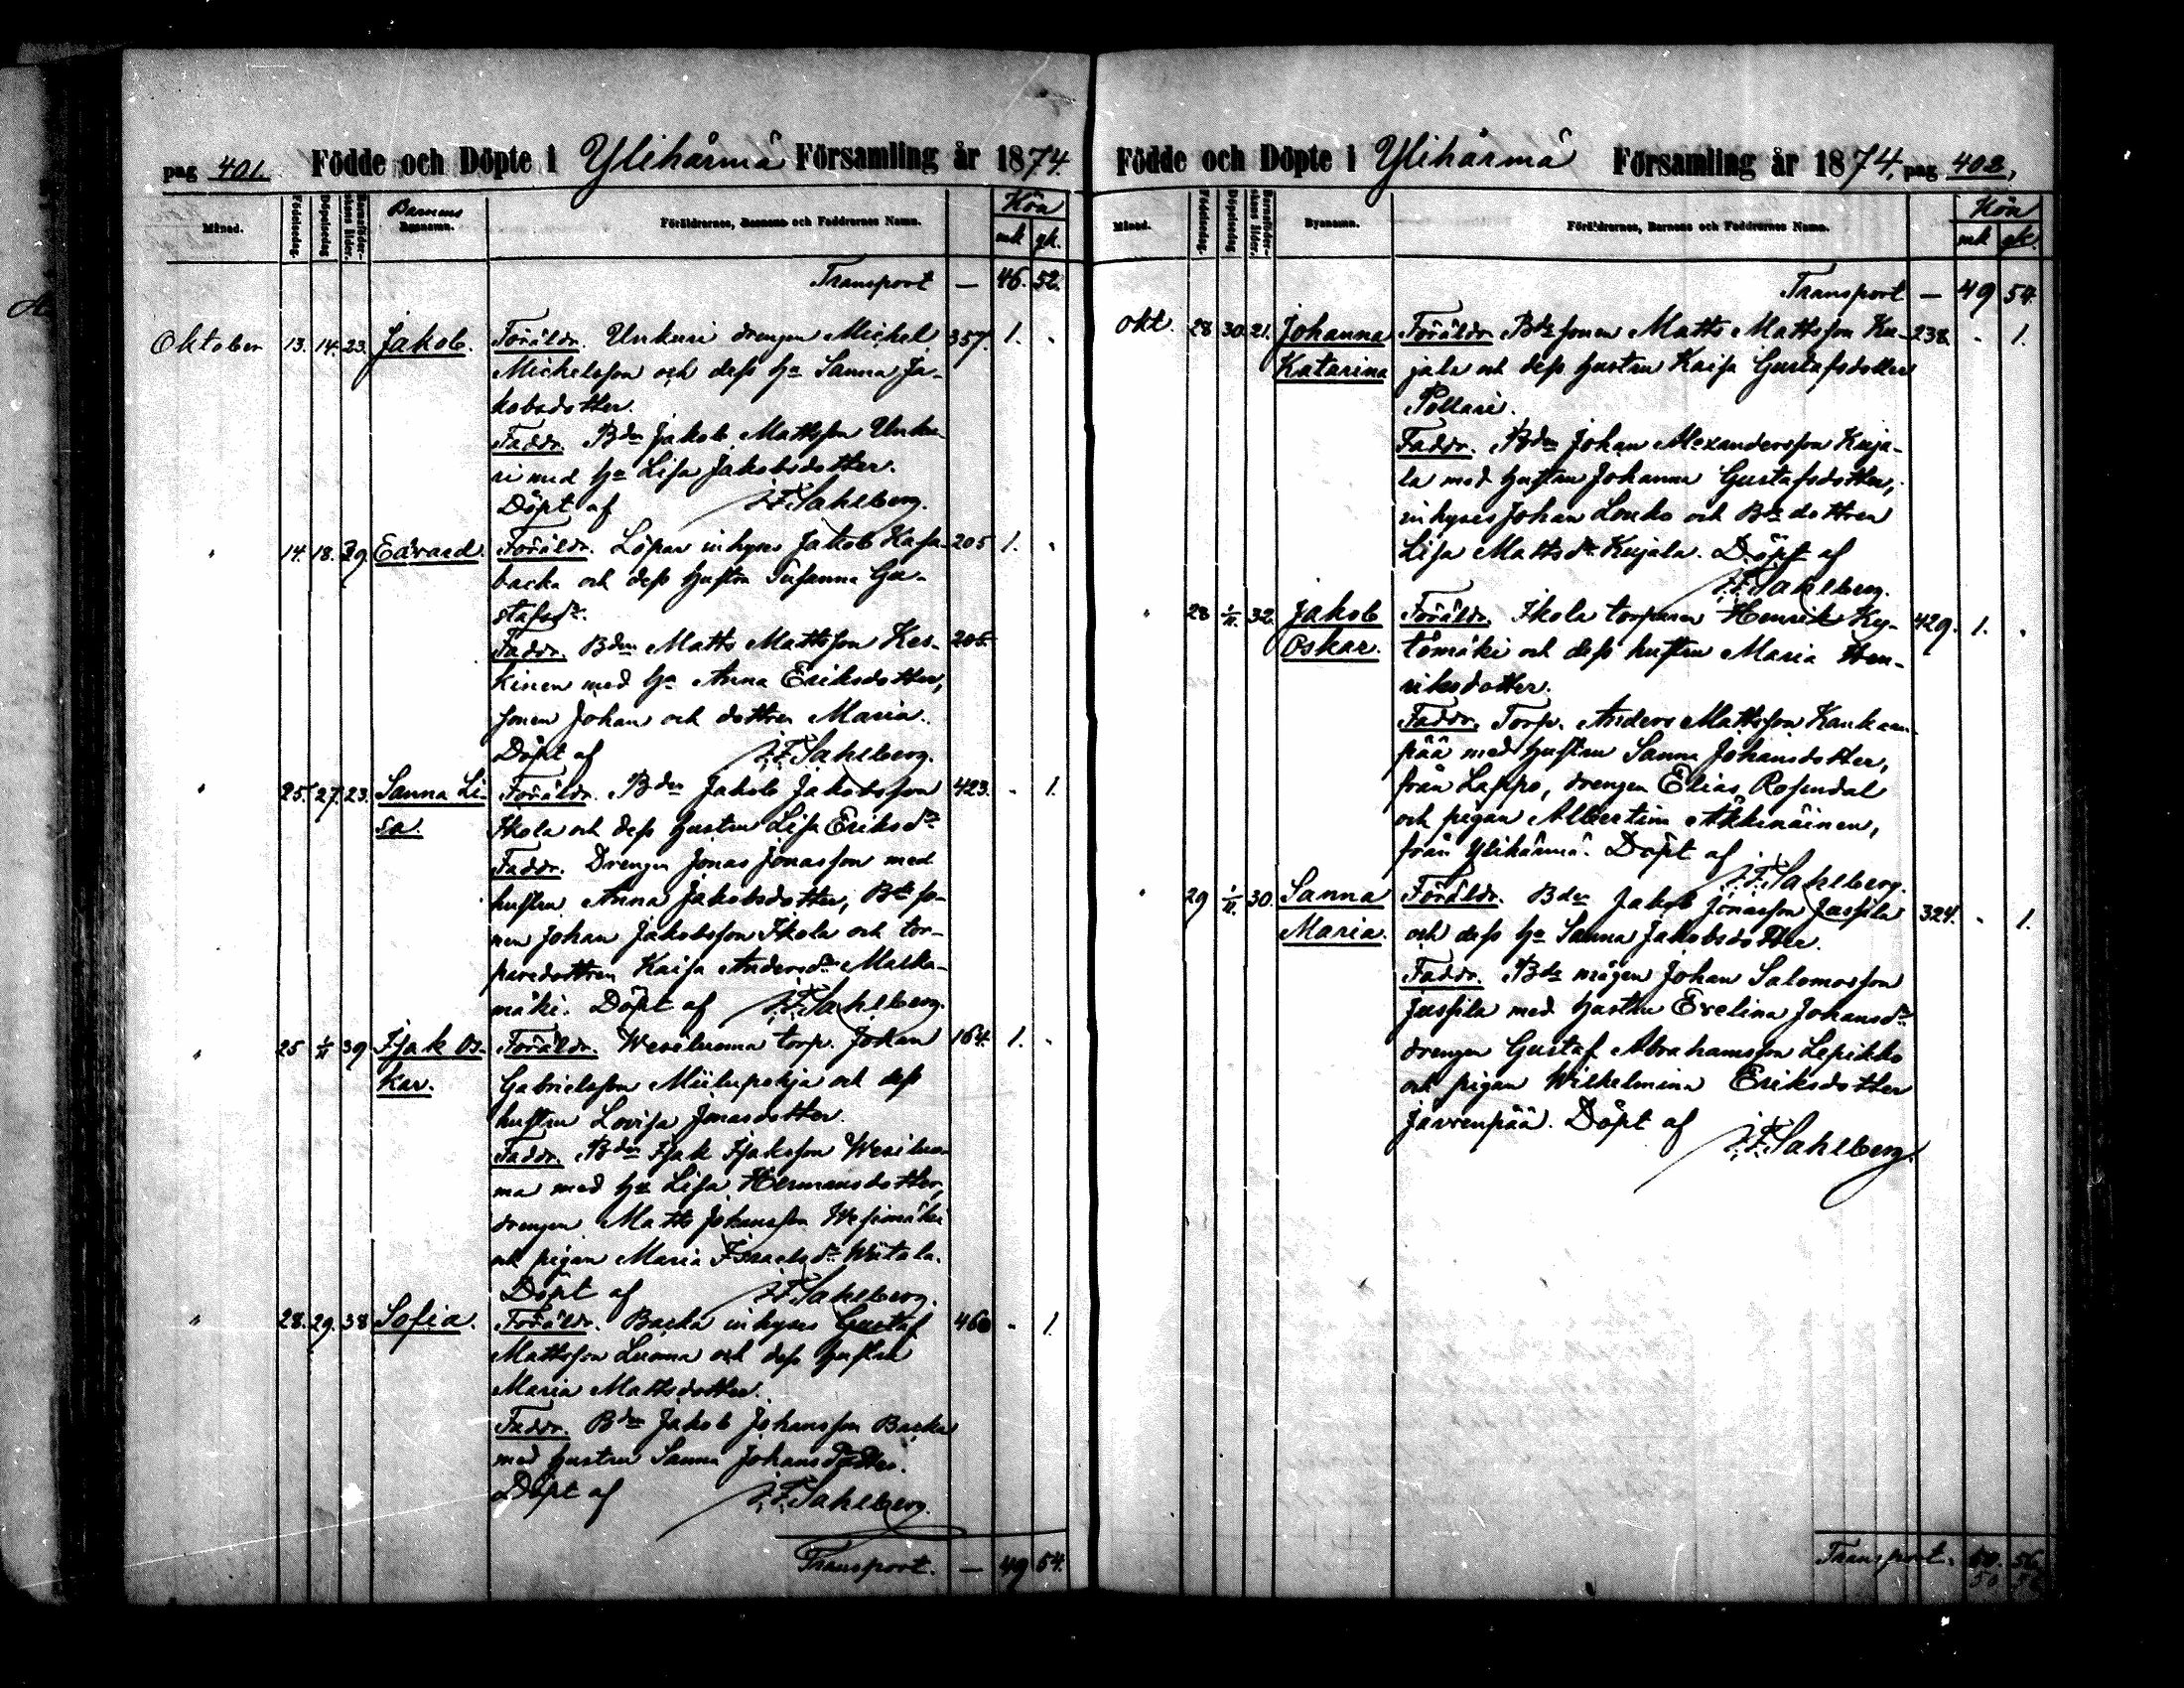 pag 401. Födde och Döpte i Ylihärmä Församling år 1874.
Månad. Födelsedag. Döpelsedag Barnaföderskans ålder. Barnens Bynamn. Föräldrarnes, Barnens och Faddrarnes Namn. Kön
mk. qk.
Transport — 46. 52.
Oktober 13. 14. 23. Jakob. Föräldr. Unkuri drengen Michel 357. 1. "
Michelsson och dess h:u Sanna Ja-
kobsdotter.
Faddr. Bdn Jakob Mattsson Unku-
ri med h:u Lisa Jakobsdotter.
Döpt af J.F. Sahlberg.
" 14. 18. 29. Edvard. Föräldr. Löpar inhyses Jakob Kasa- 205 1. "
backa och dess hustru Susanna Gu-
stafsdr.
Faddr. Bdn Matts Mattsson Kes- 205.
kinen med h:u Anna Eriksdotter,
sonen Johan och dottren Maria.
Döpt af J.F. Sahlberg.
" 25. 27. 23. Sanna Li- Föräldr. Bdn Jakob Jakobsson 423. " 1.
sa. Ikola och dess hustru Lisa Eriksdr
Faddr. Drengen Jonas Jonasson med
hustru Anna Jakobsdotter, Bde so-
nen Johan Jakobsson Ikola och tor-
paredottren Kaisa Andersdr Maska-
mäki. Döpt af J.F. Sahlberg.
" 25 1/11 39 Isak Os- Föräldr. Wesiluoma torp. Johan 164. 1. "
kar. Gabrielsson Miilupohja och dess
hustru Lovisa Jonasdotter.
Faddr. Bdn Isak Isaksson Wesiluo-
ma med h:u Lisa Hermansdotter,
drengen Matts Johansson Wesimäki
och pigan Maria Israelsdr Wiitala.
Döpt af J.F. Sahlberg.
" 28. 29. 38 Sofia. Föräldr. Backa inhyses Gustaf 460 " 1.
Mattsson Luoma och dess hustru
Maria Mattsdotter.
Faddr. Bdn Jakob Johansson Backa
med hustru Sanna Johansdotter.
Döpt af J.F. Sahlberg.
Transport. — 49 54.
Födde och Döpte i Ylihärmä Församling år 1874, pag 402,
Månad. Födelsedag. Döpelsedag Barnaföderskans ålder. Bynamn. Föräldrarnes, Barnens och Faddrarnes Namn. Kön
mk qk.
Transport — 49 54.
Okt. 28 30. 21. Johanna Föräldr. Bde sonen Matts Mattsson Ku- 238. " 1.
Katarina jala och dess hustru Kaisa Gustafsdotter
Pollari.
Faddr. Bdn Johan Alexandersson Kuja-
la med hustru Johanna Gustafsdotter,
inhyses Johan Louko och Bde dottren
Lisa Mattsdr Kujala. Döpt af
J.F. Sahlberg.
" 28 1/11. 32. Jakob Föräldr. Ikola torparen Henrik Ky- 429. 1. "
Oskar. tömäki och dess hustru Maria Hen-
riksdotter.
Faddr. Torp. Anders Mattsson Kankan-
pää med hustru Sanna Johansdotter,
från Lappo, drengen Elias Rosendal
och pigan Albertina Äkkinäinen,
från Ylihärmä. Döpt af
J.F. Sahlberg.
" 29 1/11. 30. Sanna Föräldr. Bdn Jakob Jonasson Jussila 324. " 1.
Maria. och dess h:u Sanna Jakobsdotter.
Faddr. Bde mågen Johan Salomosson
Jussila med hustru Evelina Johansdr
drengen Gustaf Abrahamsson Lepikko
och pigan Wilhelmina Eriksdotter
Javrenpää. Döpt af
J.F. Sahlberg.
Transport. 50. 56
50 56